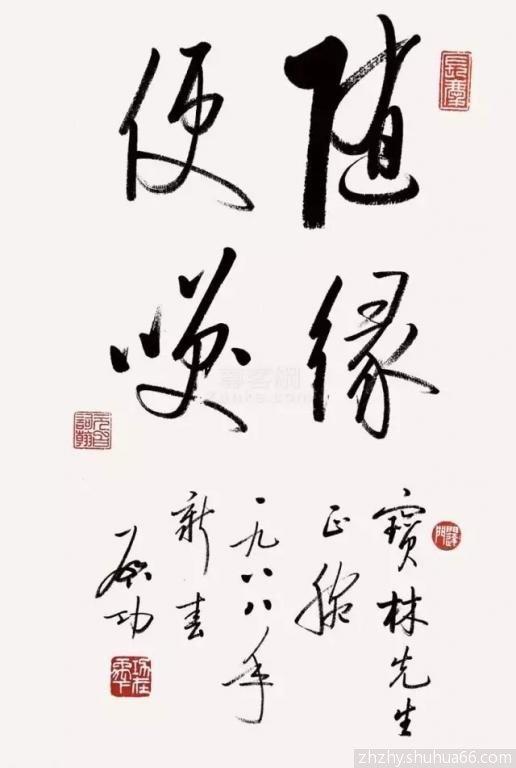 随缘
便咲
寶林先生
正腕
一九八八年
新春
启功
zhzhy.shuhua66.com